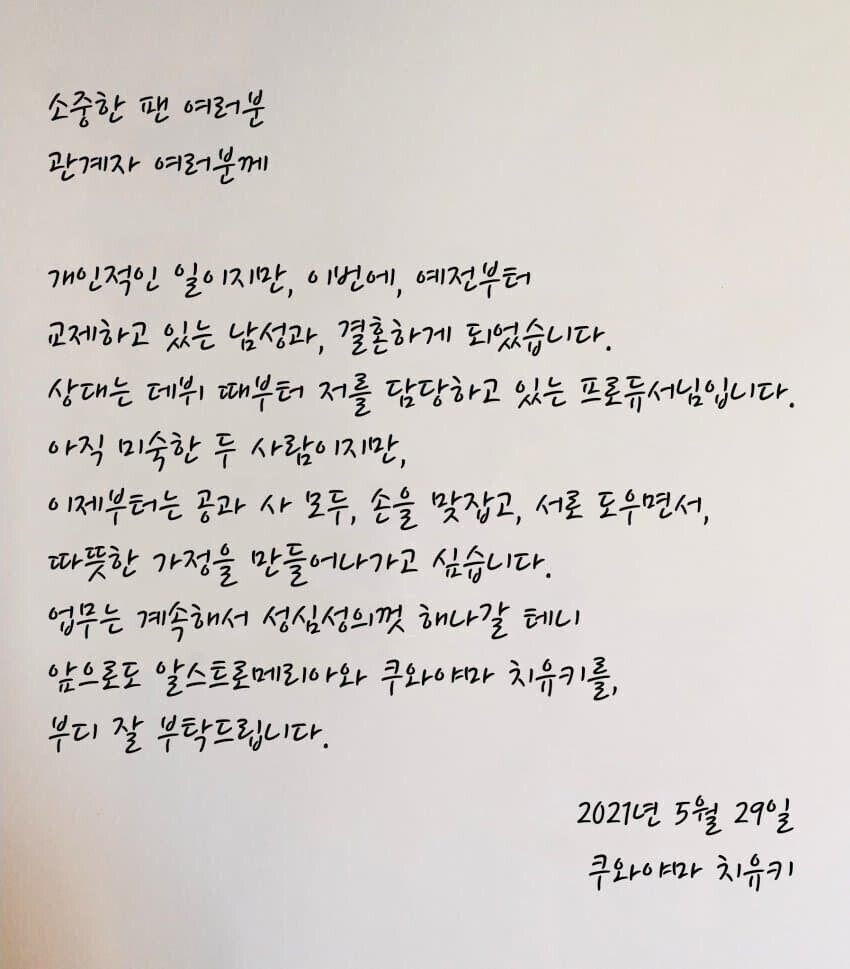 소중한 팬 여러분
관계자 여러분께
개인적인 일이지만, 이번에, 예전부터
교제하고 있는 남성과, 결혼하게 되었습니다.
상대는 데뷔 때부터 저를 담당하고 있는 프로듀서님입니다.
아직 미숙한 두 사람이지만,
이제부터는 공과 사 모두, 손을 맞잡고, 서로 도우면서,
따뜻한 가정을 만들어나가고 싶습니다.
업무는 계속해서 성심성의껏 해나갈 테니
앞으로도 알스트로메리아와 쿠와야마 치유키를,
부디 잘 부탁드립니다.
2021년 5월 29일
쿠와야마 치유키